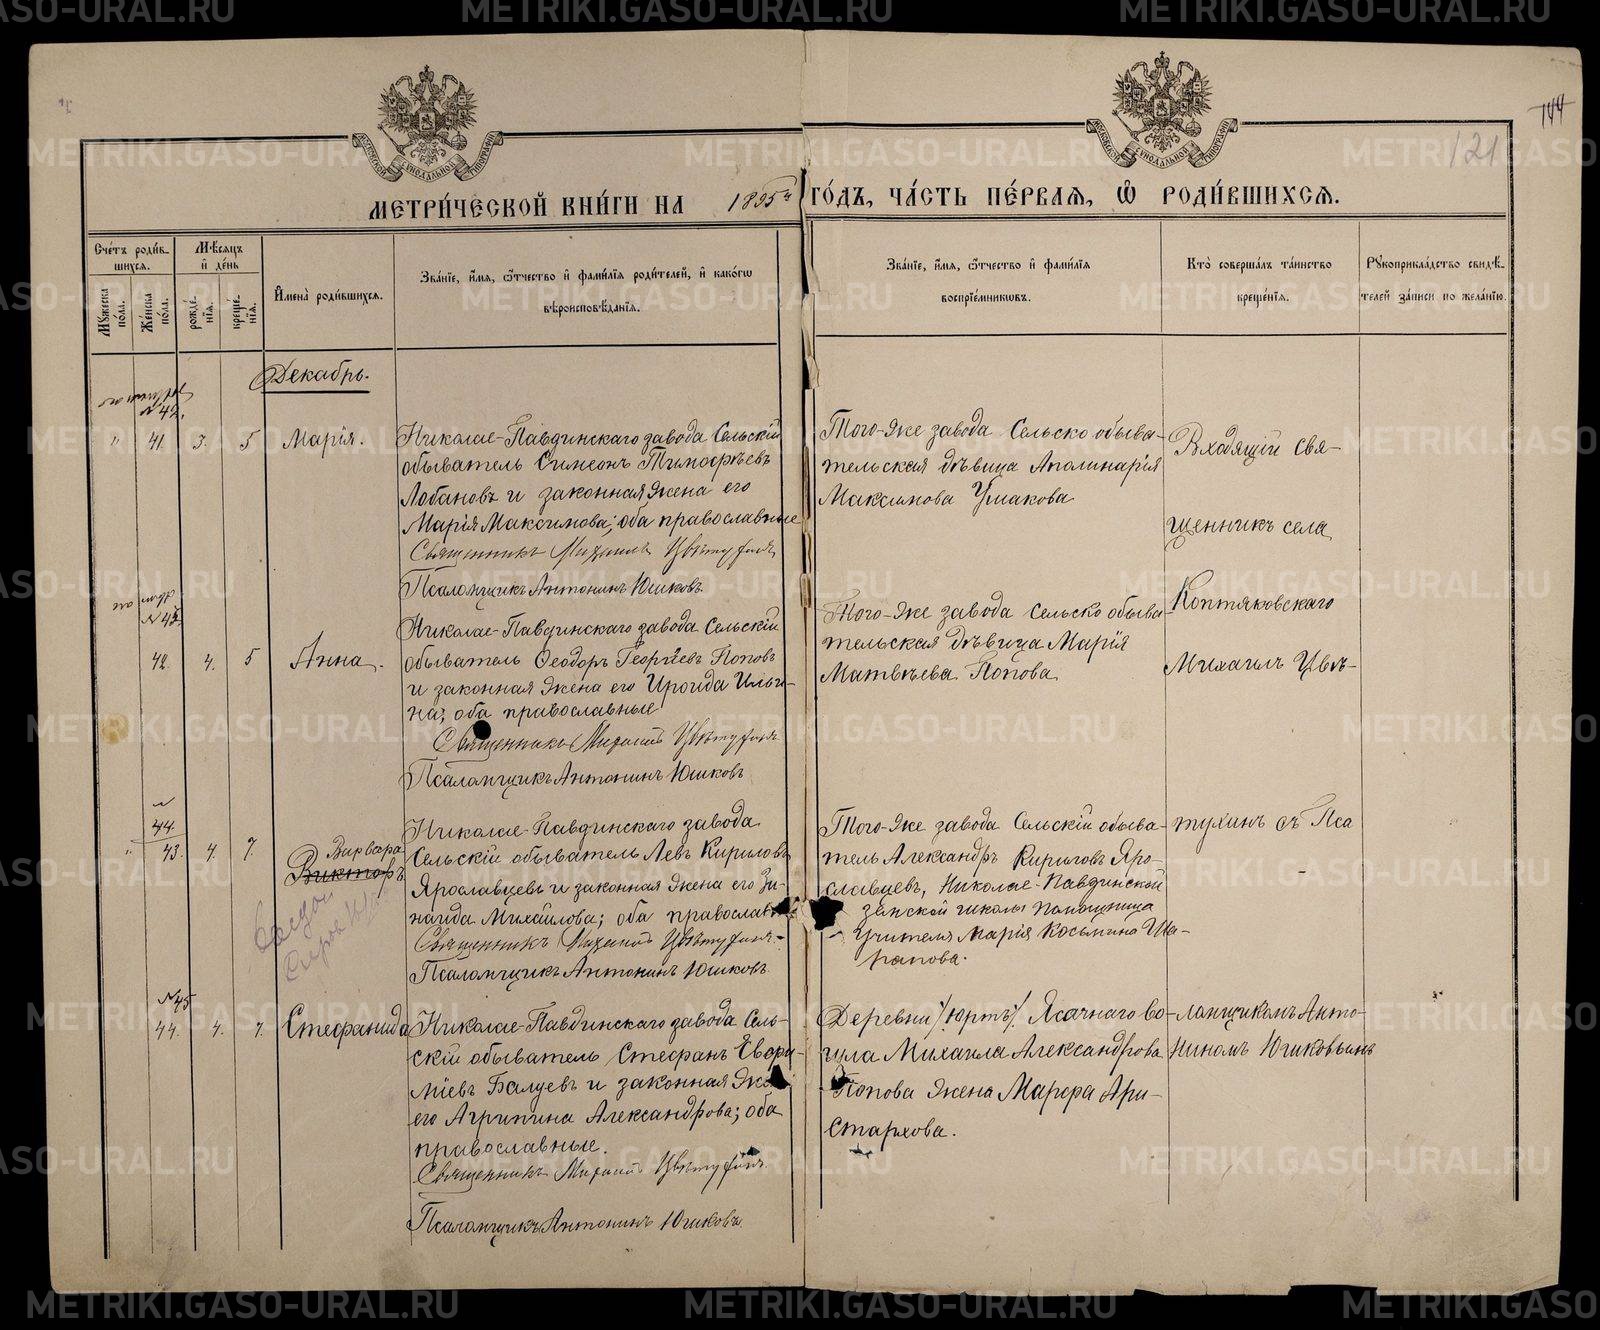 144
121
МЕТРИ́ЧЕСКОЙ КНИ́ГИ НА 1895й ГО́ДЪ, ЧА́СТЬ ПЕ́РВАЯ, Ѽ РОДИ́ВШИХСЯ.
Сче́тъ роди́в-
шихся.
Му́жеска по́ла.
Же́нска по́ла.
Мѣ́сяцъ
и́ де́нь
рожде́нїя.
креще́нїя.
И́мена̀ роди́вшихся.
Зва́нїе, и́мя, ѻ́тчество и́ фами́лїя роди́телей, и́ како́гѡ
вѣроисповѣ́данїя.
Зва́нїе, и́мя, ѻ́тчество и́ фами́лїя
воспрїе́мниковъ.
Кто̀ соверша́лъ та́инство
креще́нїя.
Рꙋкоприкла́дство свидѣ́-
телей за́писи по жела́нїю.
Декабрь.
№ 42.
" 41. 3. 5 Марія.
Николае-Павдинскаго завода Сельскій
обыватель Симеонъ Тимоѳеевъ
Лобановъ и законная жена его
Марія Максимова; оба православные
Священникъ Михаилъ Цвѣтухинъ
Псаломщикъ Антонинъ Юшковъ.
Того-же завода Сельско обыва-
тельская дѣвица Аполинарія
Максимова Ушакова
Входящій Свя-
щенникъ села
№ 43.
42. 4. 5 Анна.
Николае-Павдинскаго завода Сельскій
обыватель Ѳеодоръ Георгіевъ Поповъ
и законная жена его Ироида Ильи-
на; оба православные
Священникъ Михаилъ Цвѣтухинъ
Псаломщикъ Антонинъ Юшковъ
Того-же завода Сельско обыва-
тельская дѣвица Марія
Матвѣева Попова
Коптяковскаго
Михаилъ Цвѣ-
44.
" 43. 4. 7. Варвара
Викторъ
Николае-Павдинскаго завода
Сельскій обыватель Левъ Кириловъ
Ярославцевъ и законная жена его Зи-
наида Михайлова; оба православн
Священникъ Михаилъ Цвѣтухинъ
Псаломщикъ Антонинъ Юшковъ.
Того-же завода Сельскій обыва-
тель Александръ Кириловъ Яро-
славцевъ, Николае-Павдинской
земской школы помощница
учителя Марія Косьмина Ша-
рапова.
тухинъ съ Пса
№ 45
44. 4. 7. Стефанида
Николае-Павдинскаго завода Сель-
скій обыватель Стефанъ Евѳи-
міевъ Балуевъ и законная жена
его Агрипина Александрова; оба
православные.
Священникъ Михаилъ Цвѣтухинъ
Псаломщикъ Антонинъ Юшковъ
Деревни /Юртъ/ Ясачнаго во-
гула Михаила Александрова
Попова жена Марфа Ари-
стархова.
ломщикомъ Анто-
ниномъ Юшковымъ
METRIKI.GASO-URAL.RU